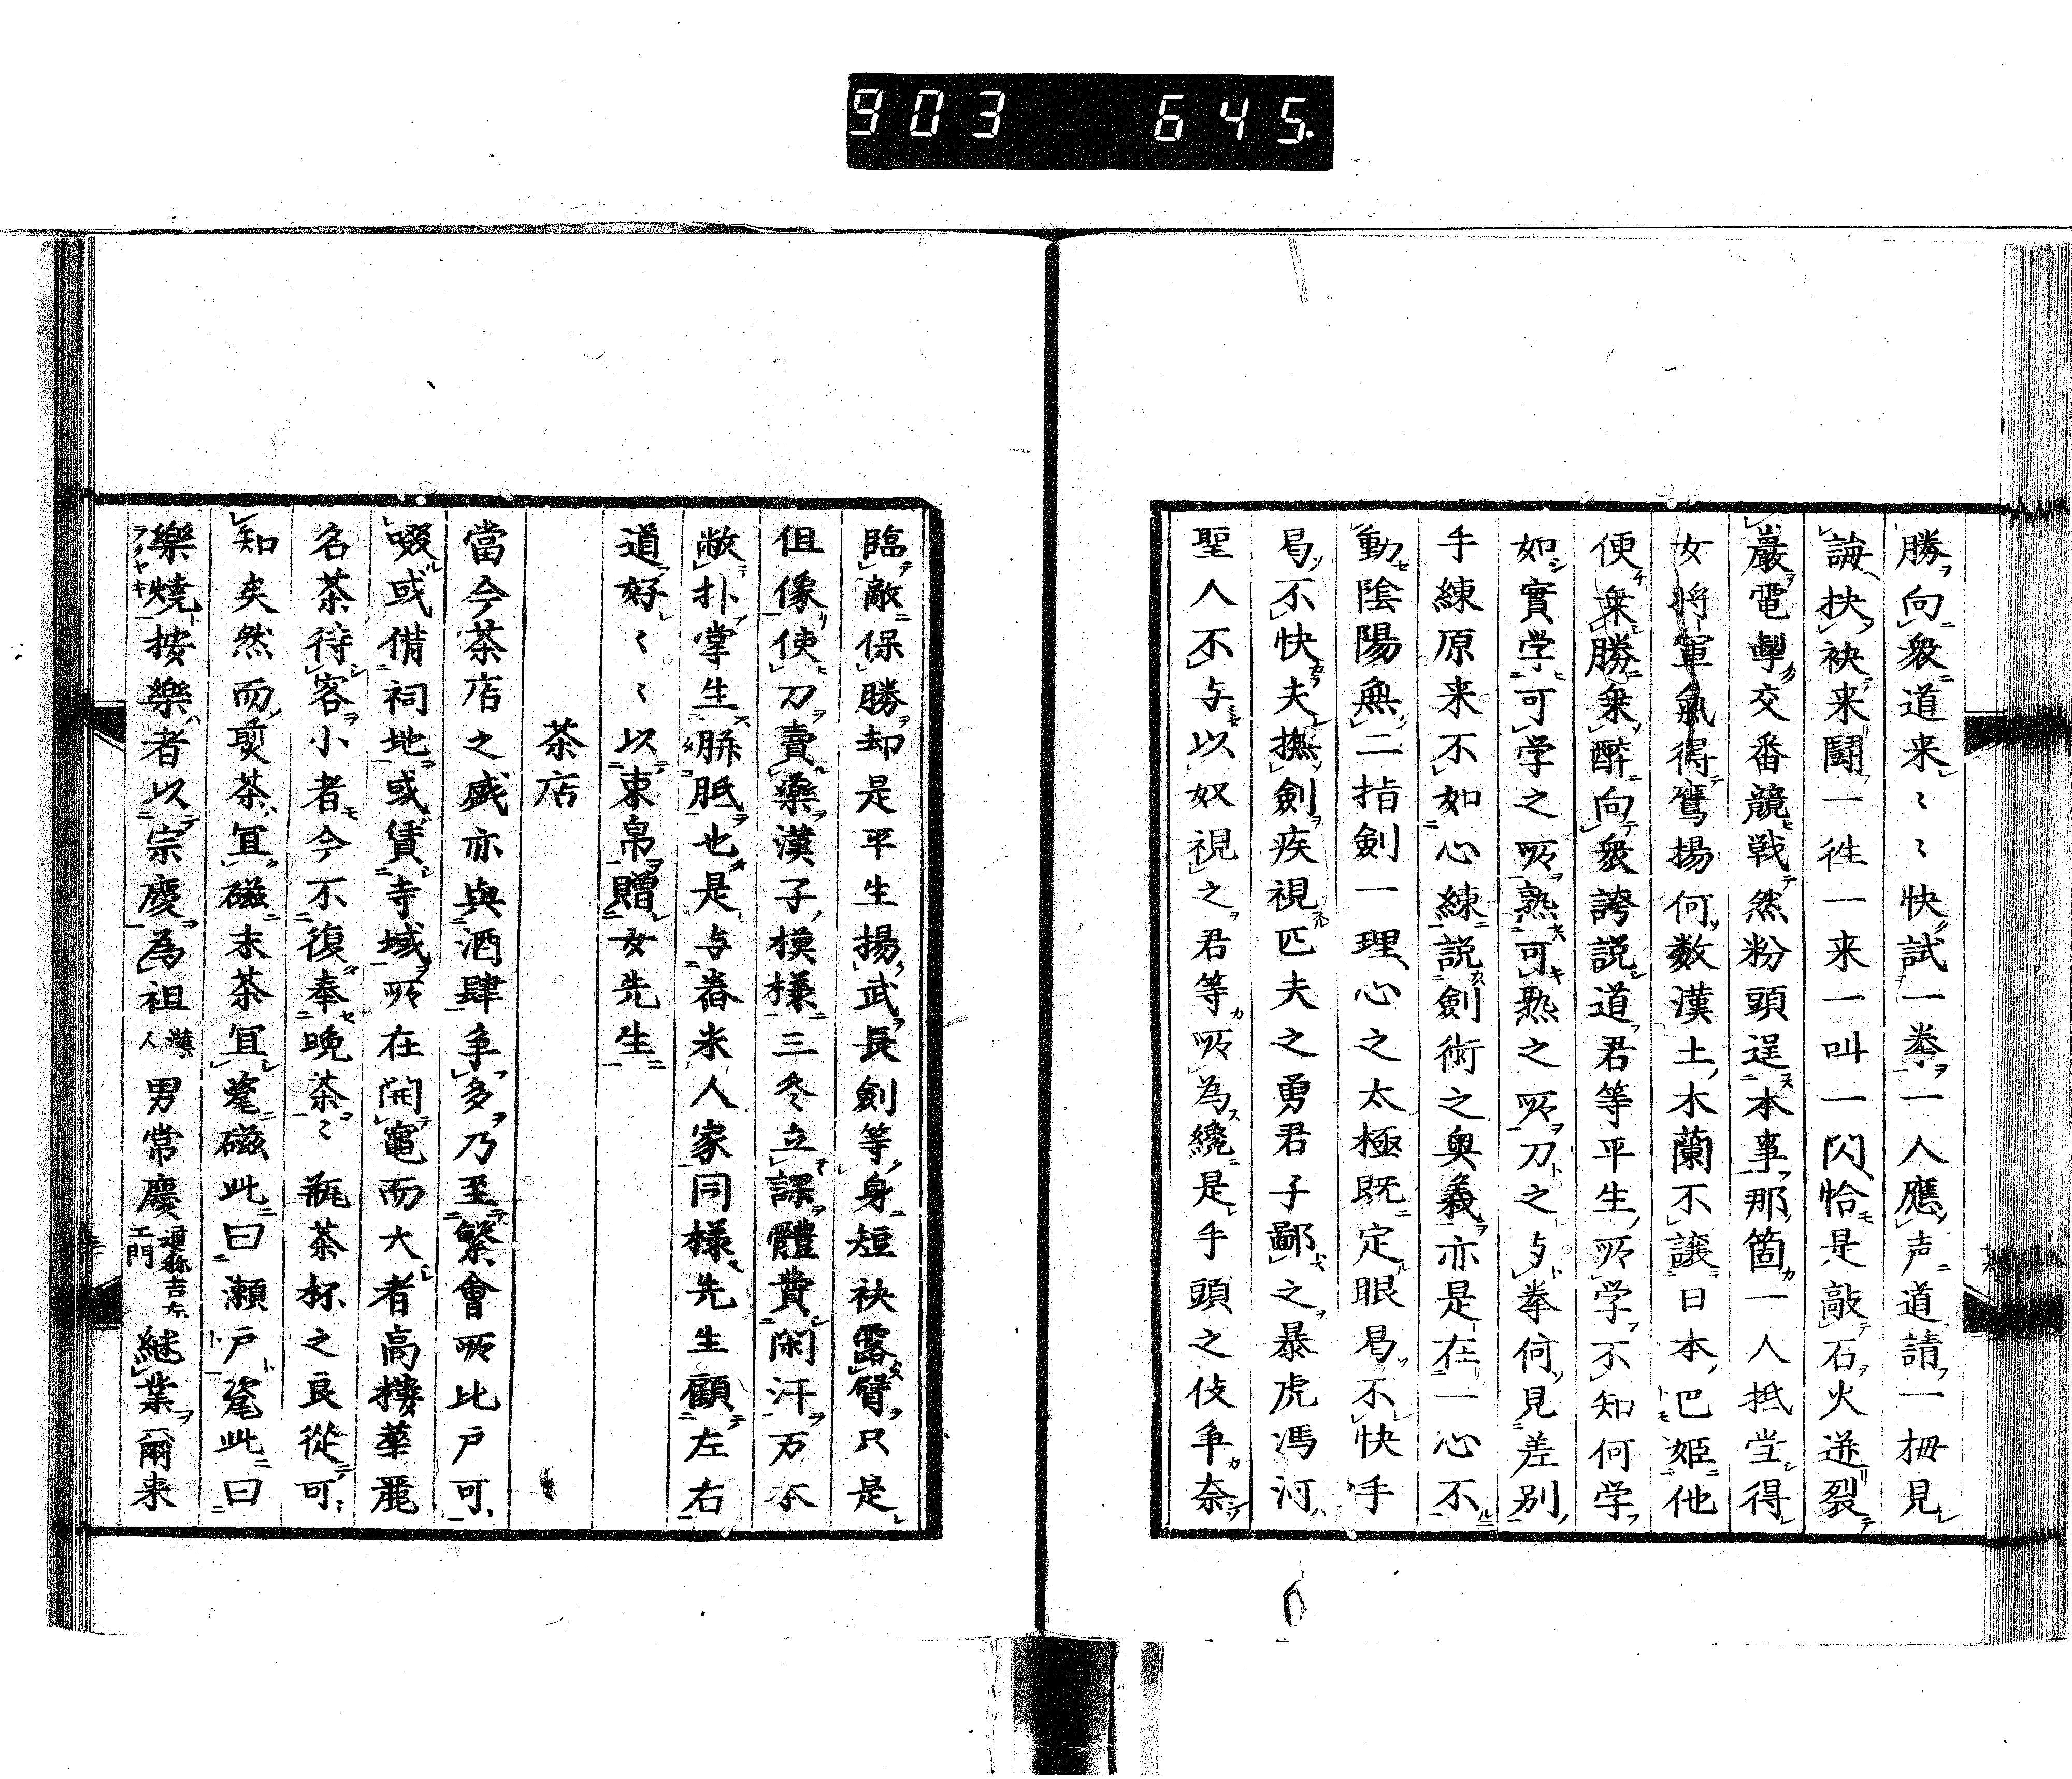 903 645.
勝向衆道来〻〻快試一拳一人應声道請一拇見
誨抉袂来闘一徃一来一叫一閃恰是敲石火迸裂
巖電掣交番競戦然粉頭逞本事那箇一人抵当得
女将軍氣得鷹揚何数漢土木蘭不譲日本巴姫他
便乗勝乗酔向衆誇説道君等平生所学不知何学
如實学可学之所熟可熟之所刀之与拳何見差別
手練原来不如心練説劍術之奥義亦是在一心不
動陰陽無二指劍一理心之太極既定眼曷不快手
曷不快夫撫劍疾視匹夫之勇君子鄙之暴虎馮河
聖人不与以奴視之君等所為纔是手頭之伎争奈
臨敵保勝却是平生揚武長劍等身短袂露臂只是
但像使刀賣藥漢子模様三冬立課體費閑汗万本
敝扑掌生胼胝也是与舂米人家同様先生顧左右
道好〻〻以束帛贈女先生
茶店
當今茶店之盛亦與酒肆争多乃至繁會所比戸可
啜或借祠地或賃寺域所在開竈而大者高樓華麗
名茶待客小者今不復奉晩茶〻瓶茶杯之良従可
知矣然而煎茶冝磁末茶冝窰磁此曰瀬戸窰此曰
樂燒按樂者以宗慶為祖漢人男常慶通称吉左エ門継業爾来
ラクヤキ